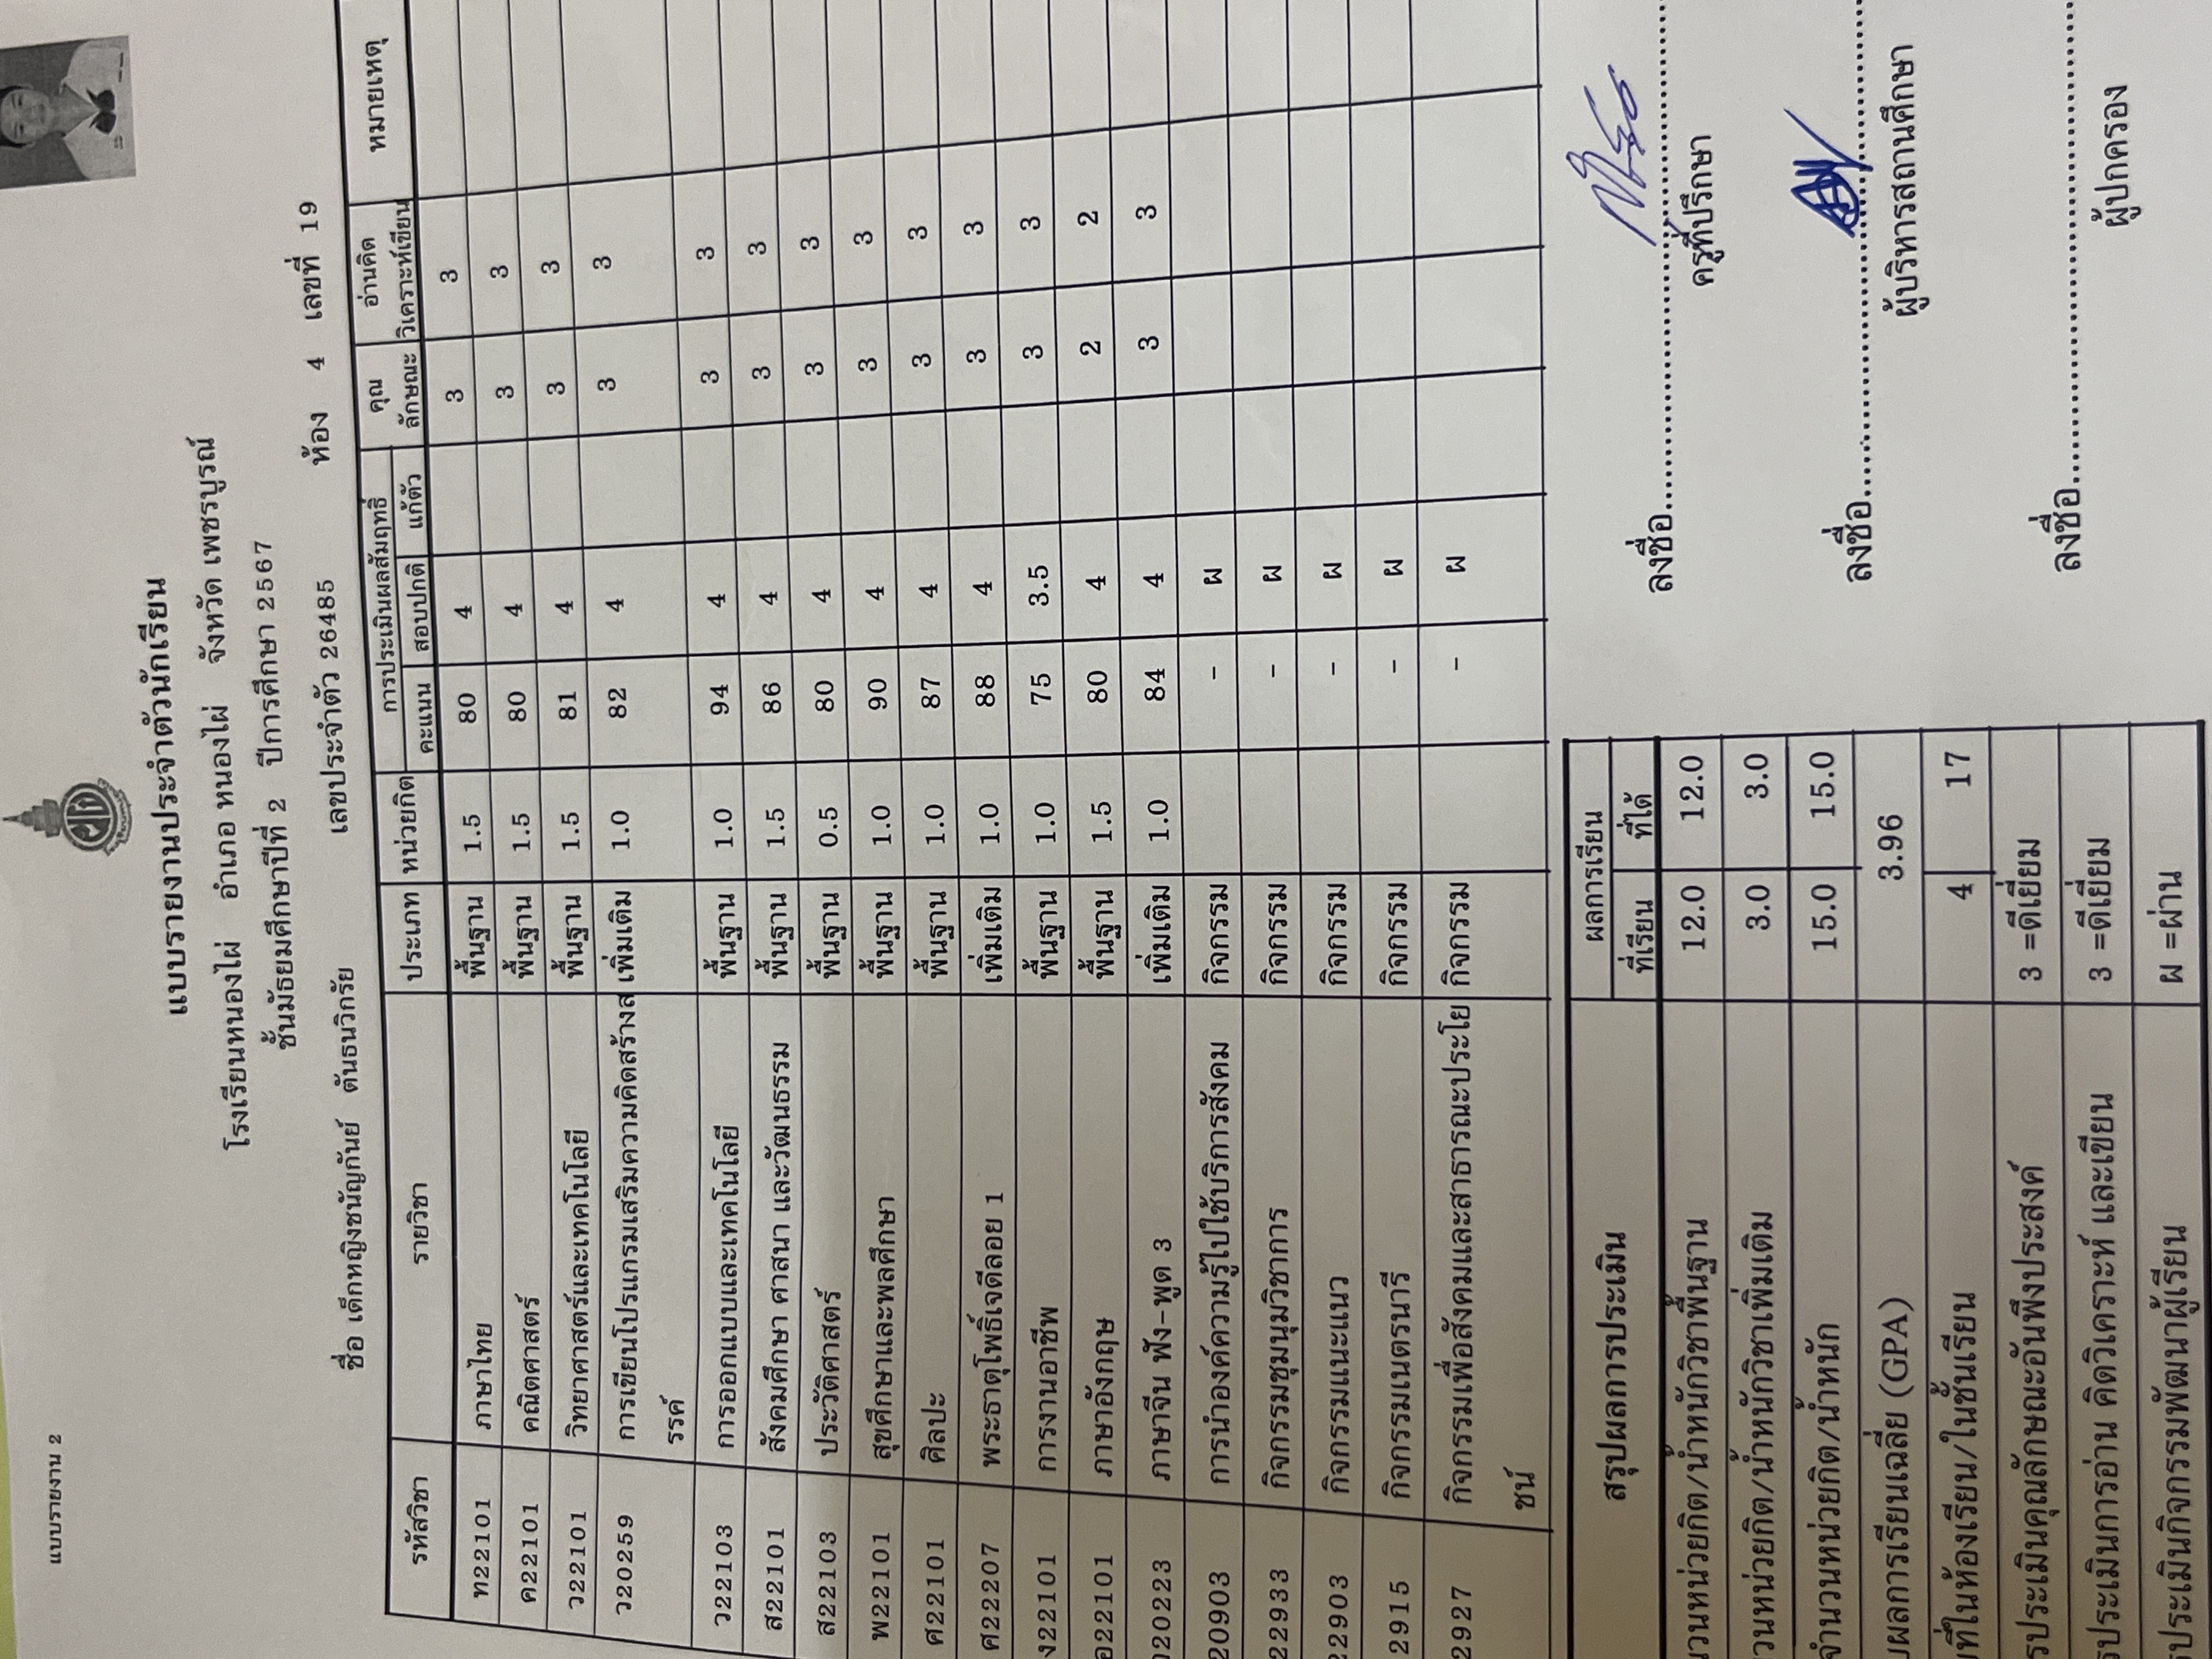 แบบรายงาน 2
แบบรายงานประจำตัวนักเรียน
โรงเรียนหนองไผ่ อำเภอ หนองไผ่ จังหวัด เพชรบูรณ์
ชั้นมัธยมศึกษาปีที่ 2 ปีการศึกษา 2567
ชื่อ เด็กหญิงชนัญกันย์ ตันธนวิกรัย เลขประจำตัว 26485 ห้อง 4 เลขที่ 19
รหัสวิชา รายวิชา ประเภท หน่วยกิต การประเมินผลสัมฤทธิ์ คุณ อ่านคิด หมายเหตุ
คะแนน สอบปกติ แก้ตัว ลักษณะ วิเคราะห์เขียน
ท22101 ภาษาไทย พื้นฐาน 1.5 80 4 3 3
ค22101 คณิตศาสตร์ พื้นฐาน 1.5 80 4 3 3
ว22101 วิทยาศาสตร์และเทคโนโลยี พื้นฐาน 1.5 81 4 3 3
ว20259 การเขียนโปรแกรมเสริมความคิดสร้างส เพิ่มเติม 1.0 82 4 3 3
รรค์
ว22103 การออกแบบและเทคโนโลยี พื้นฐาน 1.0 94 4 3 3
ส22101 สังคมศึกษา ศาสนา และวัฒนธรรม พื้นฐาน 1.5 86 4 3 3
ส22103 ประวัติศาสตร์ พื้นฐาน 0.5 80 4 3 3
พ22101 สุขศึกษาและพลศึกษา พื้นฐาน 1.0 90 4 3 3
ศ22101 ศิลปะ พื้นฐาน 1.0 87 4 3 3
ศ22207 พระธาตุโพธิ์เจดีลอย 1 เพิ่มเติม 1.0 88 4 3 3
ง22101 การงานอาชีพ พื้นฐาน 1.0 75 3.5 3 3
อ22101 ภาษาอังกฤษ พื้นฐาน 1.5 80 4 2 2
20223 ภาษาจีน ฟัง-พูด 3 เพิ่มเติม 1.0 84 4 3 3
20903 การนำองค์ความรู้ไปใช้บริการสังคม กิจกรรม - ผ
22933 กิจกรรมชุมนุมวิชาการ กิจกรรม - ผ
22903 กิจกรรมแนะแนว กิจกรรม - ผ
2915 กิจกรรมเนตรนารี กิจกรรม - ผ
2927 กิจกรรมเพื่อสังคมและสาธารณะประโย กิจกรรม - ผ
ชน์
สรุปผลการประเมิน ผลการเรียน
ที่เรียน ที่ได้
วนหน่วยกิต/น้ำหนักวิชาพื้นฐาน 12.0 12.0
วนหน่วยกิต/น้ำหนักวิชาเพิ่มเติม 3.0 3.0
จำนวนหน่วยกิต/น้ำหนัก 15.0 15.0
ผลการเรียนเฉลี่ย (GPA) 3.96
ที่ในห้องเรียน/ในชั้นเรียน 4 17
รประเมินคุณลักษณะอันพึงประสงค์ 3 =ดีเยี่ยม
รประเมินการอ่าน คิดวิเคราะห์ และเขียน 3 =ดีเยี่ยม
ประเมินกิจกรรมพัฒนาผู้เรียน ผ =ผ่าน
ลงชื่อ
ครูที่ปรึกษา
ลงชื่อ
ผู้บริหารสถานศึกษา
ลงชื่อ
ผู้ปกครอง